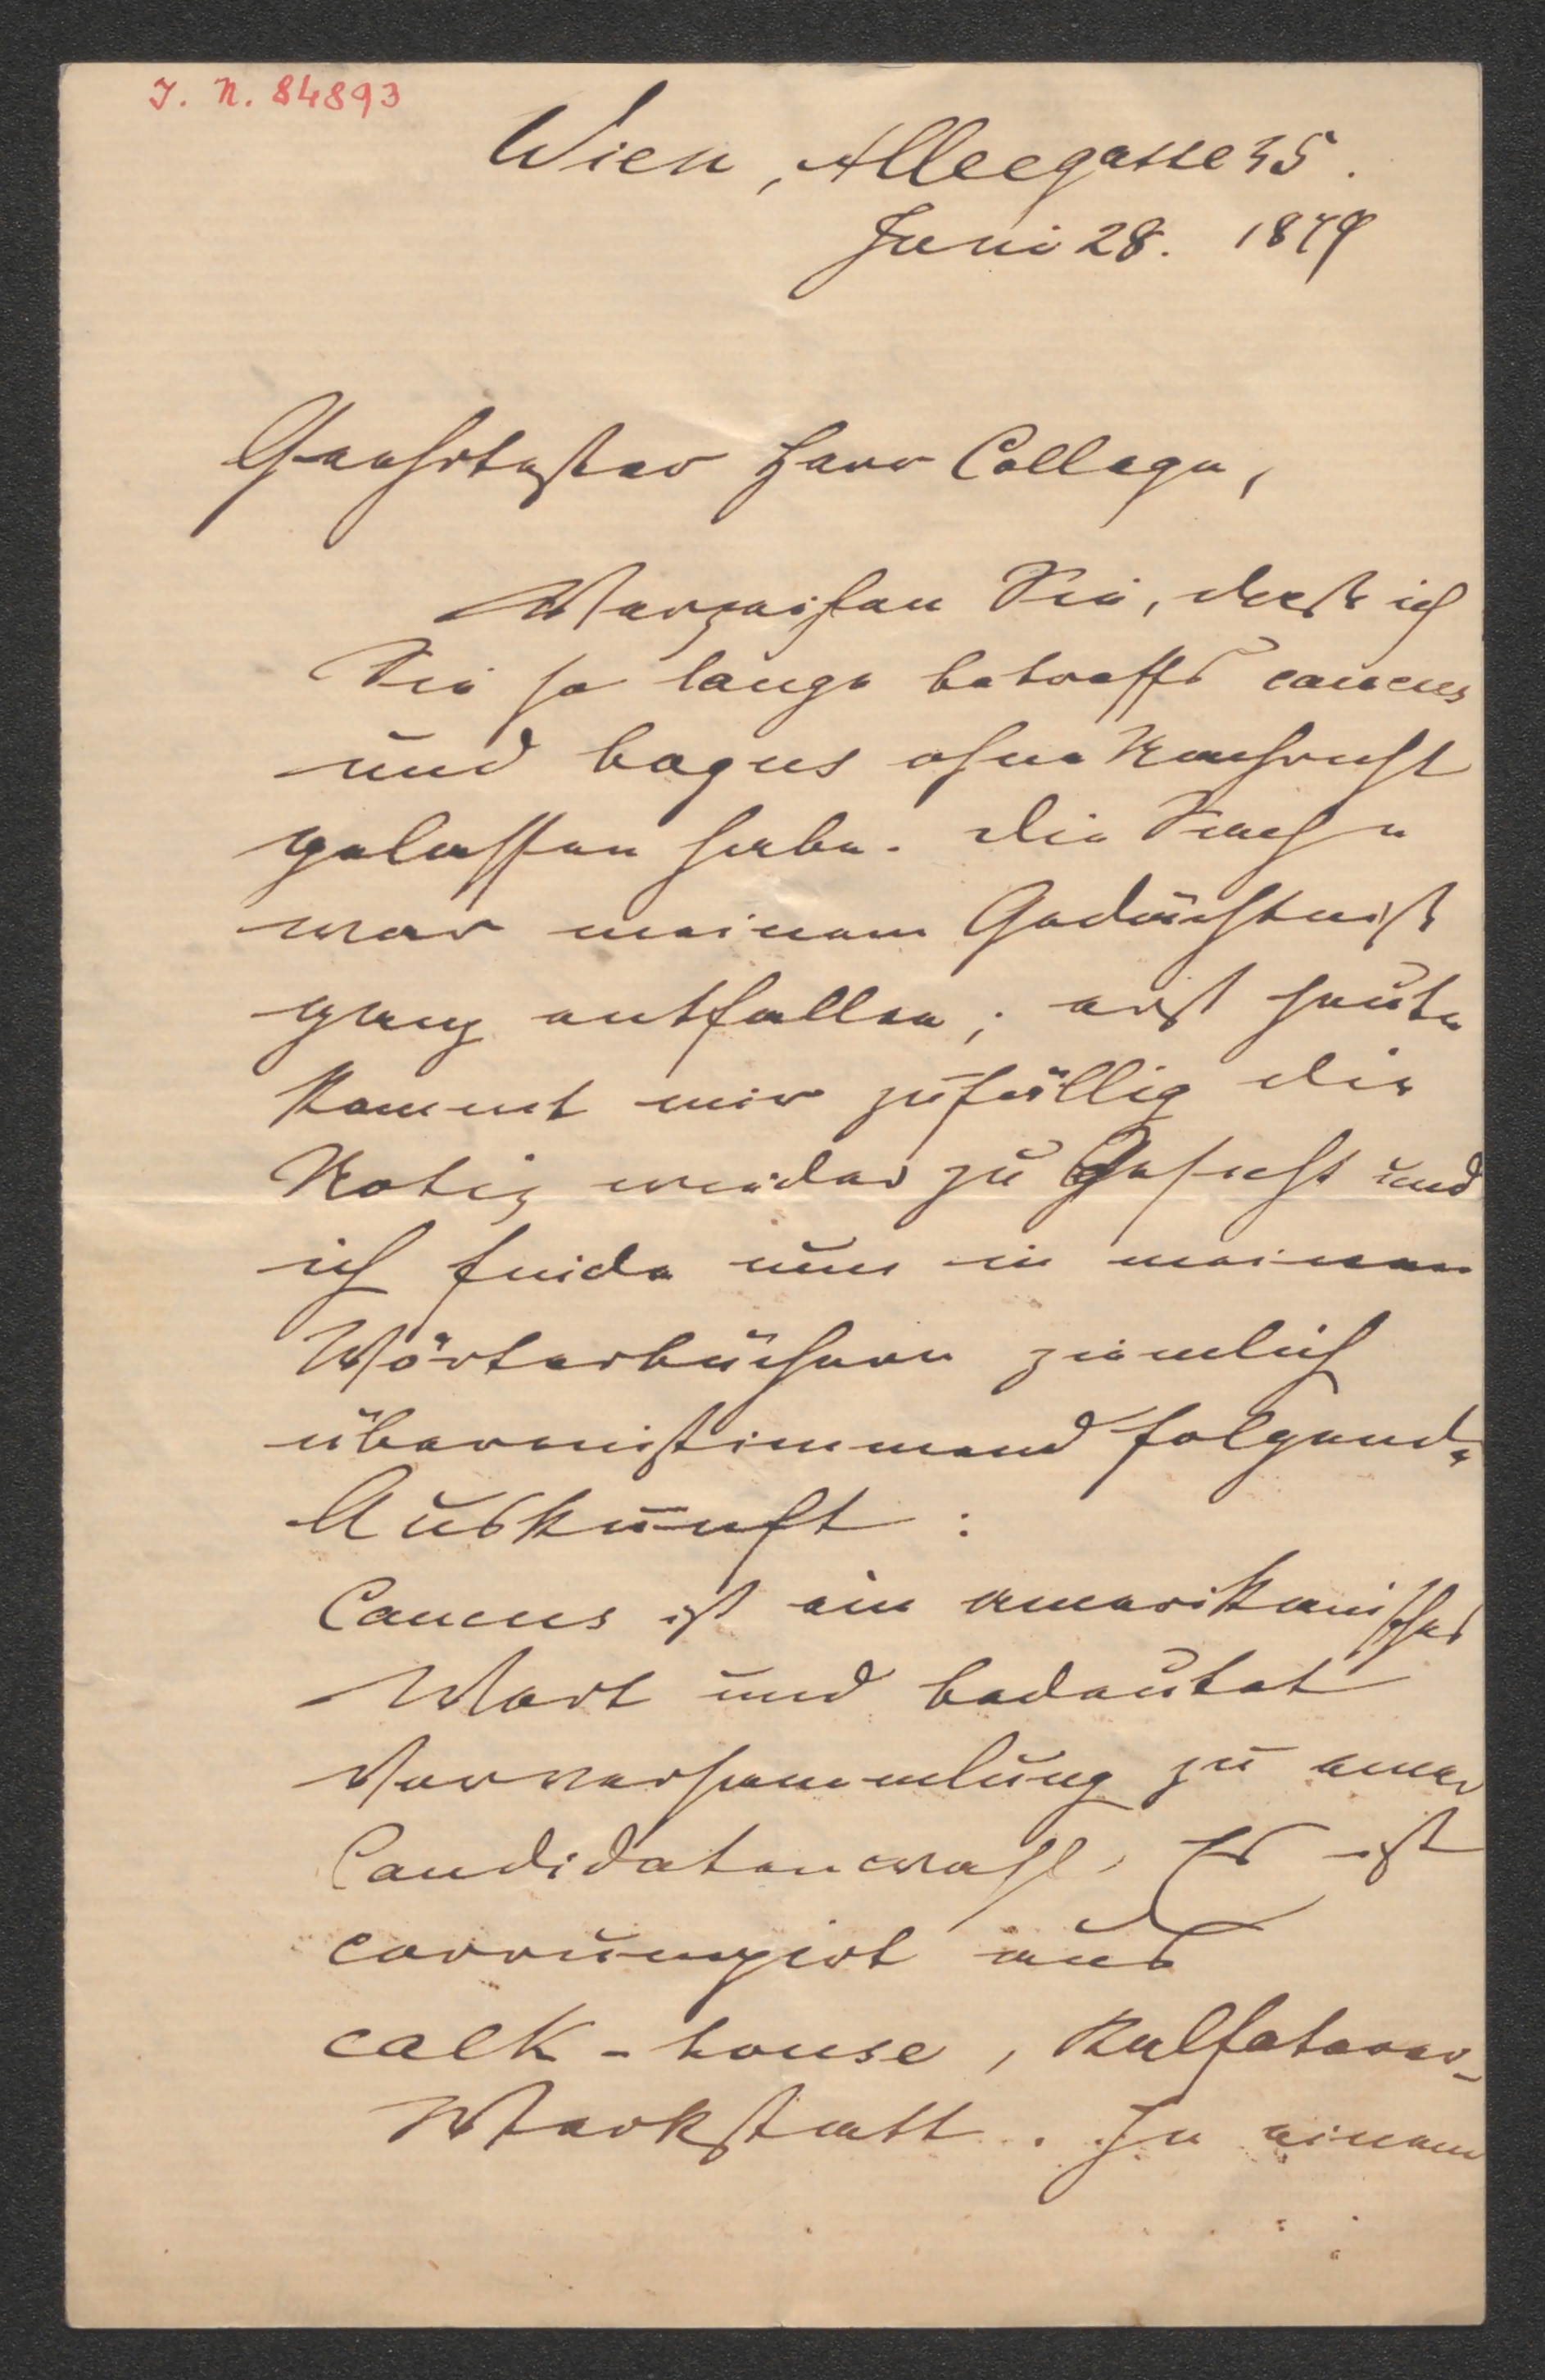 I. N. 84893
Wien, Alleegasse 35.
Juni 28. 1879
Geehrtester Herr College,
Verzeihen Sie, daß ich
Sie so lange betreffs caucus
und bogus ohne Nachricht
gelassen habe. Die Sache
war meinem Gedächtniß
ganz entfallen; erst heute
kommt mir zufällig die
Notiz wieder zu Gesicht und
ich finde nun in meinen
Wörterbüchern ziemlich
übereinstimmend folgende
Auskunft:
Caucus ist ein amerikanisches
Wort und bedeutet
Vorversammlung zu einer
Candidatenwahl. Es ist
corrumpirt aus
calk-house, Kalfaterer-
Werkstatt. In einem